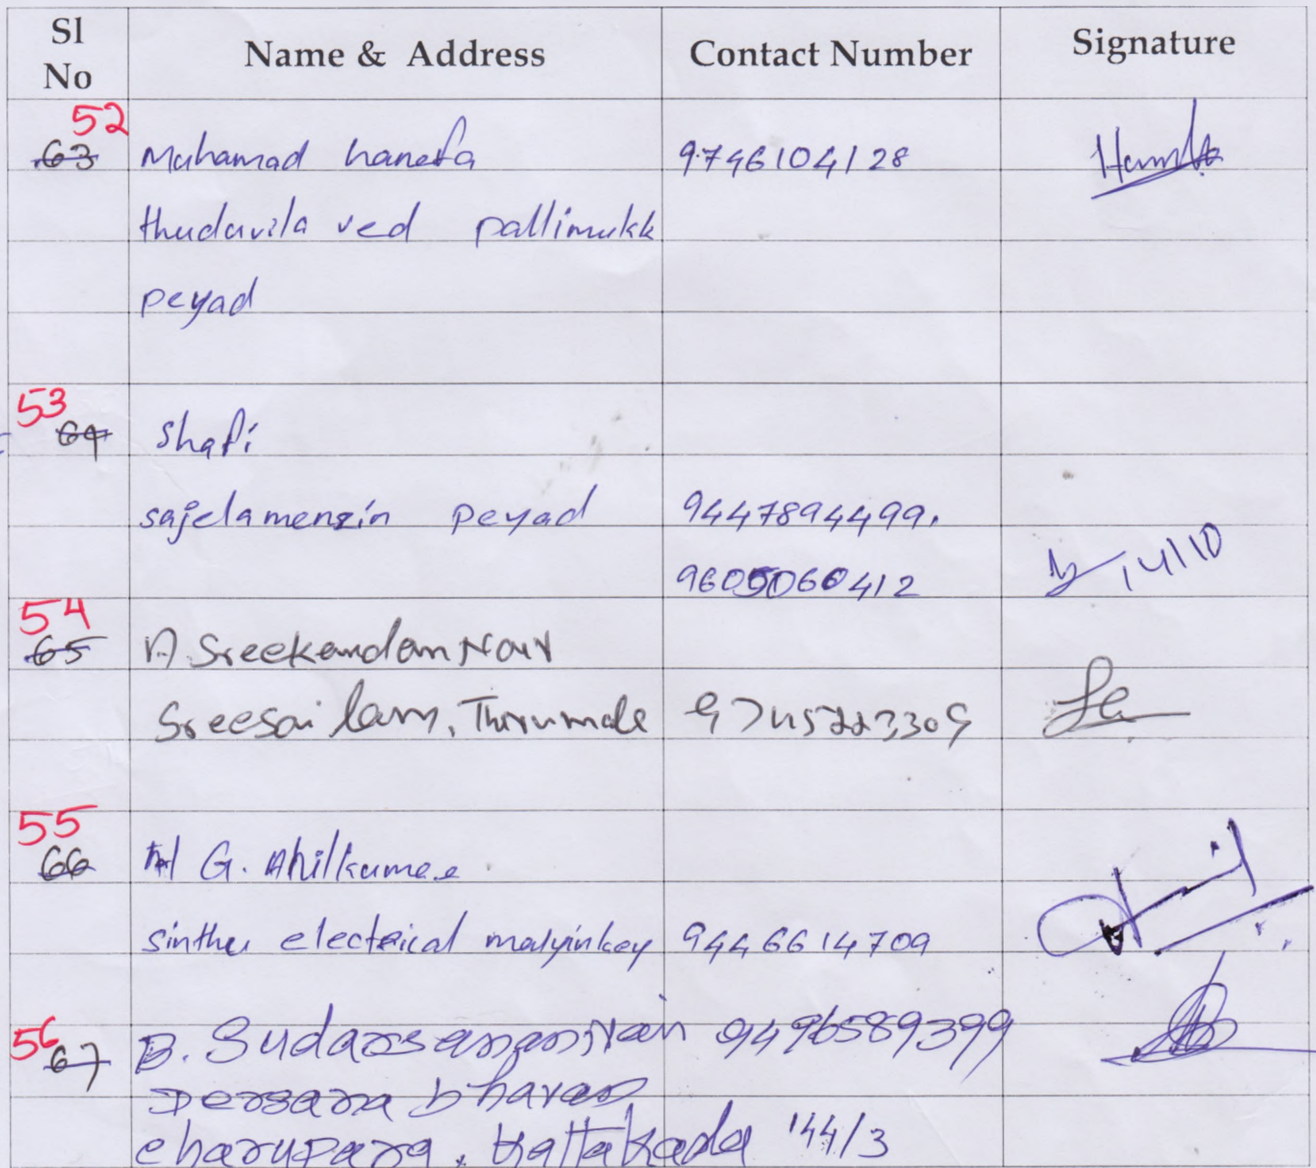 Sl No Name & Address Contact Number Signature
52
63 Muhamad hanefa 9746104128
thuduvila ved pallimukk
peyad
53
64 Shafi
sajelamenzin peyad 9447894499.
9605060412 14/10
54
65 A Sreekandan Nair
Sreesailam, Thirumala 9745223309
55
66 G. Anilkumar
sinthu electrical malyinkey 9446614709
56
67 B. Sudarsanan Nair 9496589399
Dersana bhavan
charupara, Kattakada 144/3